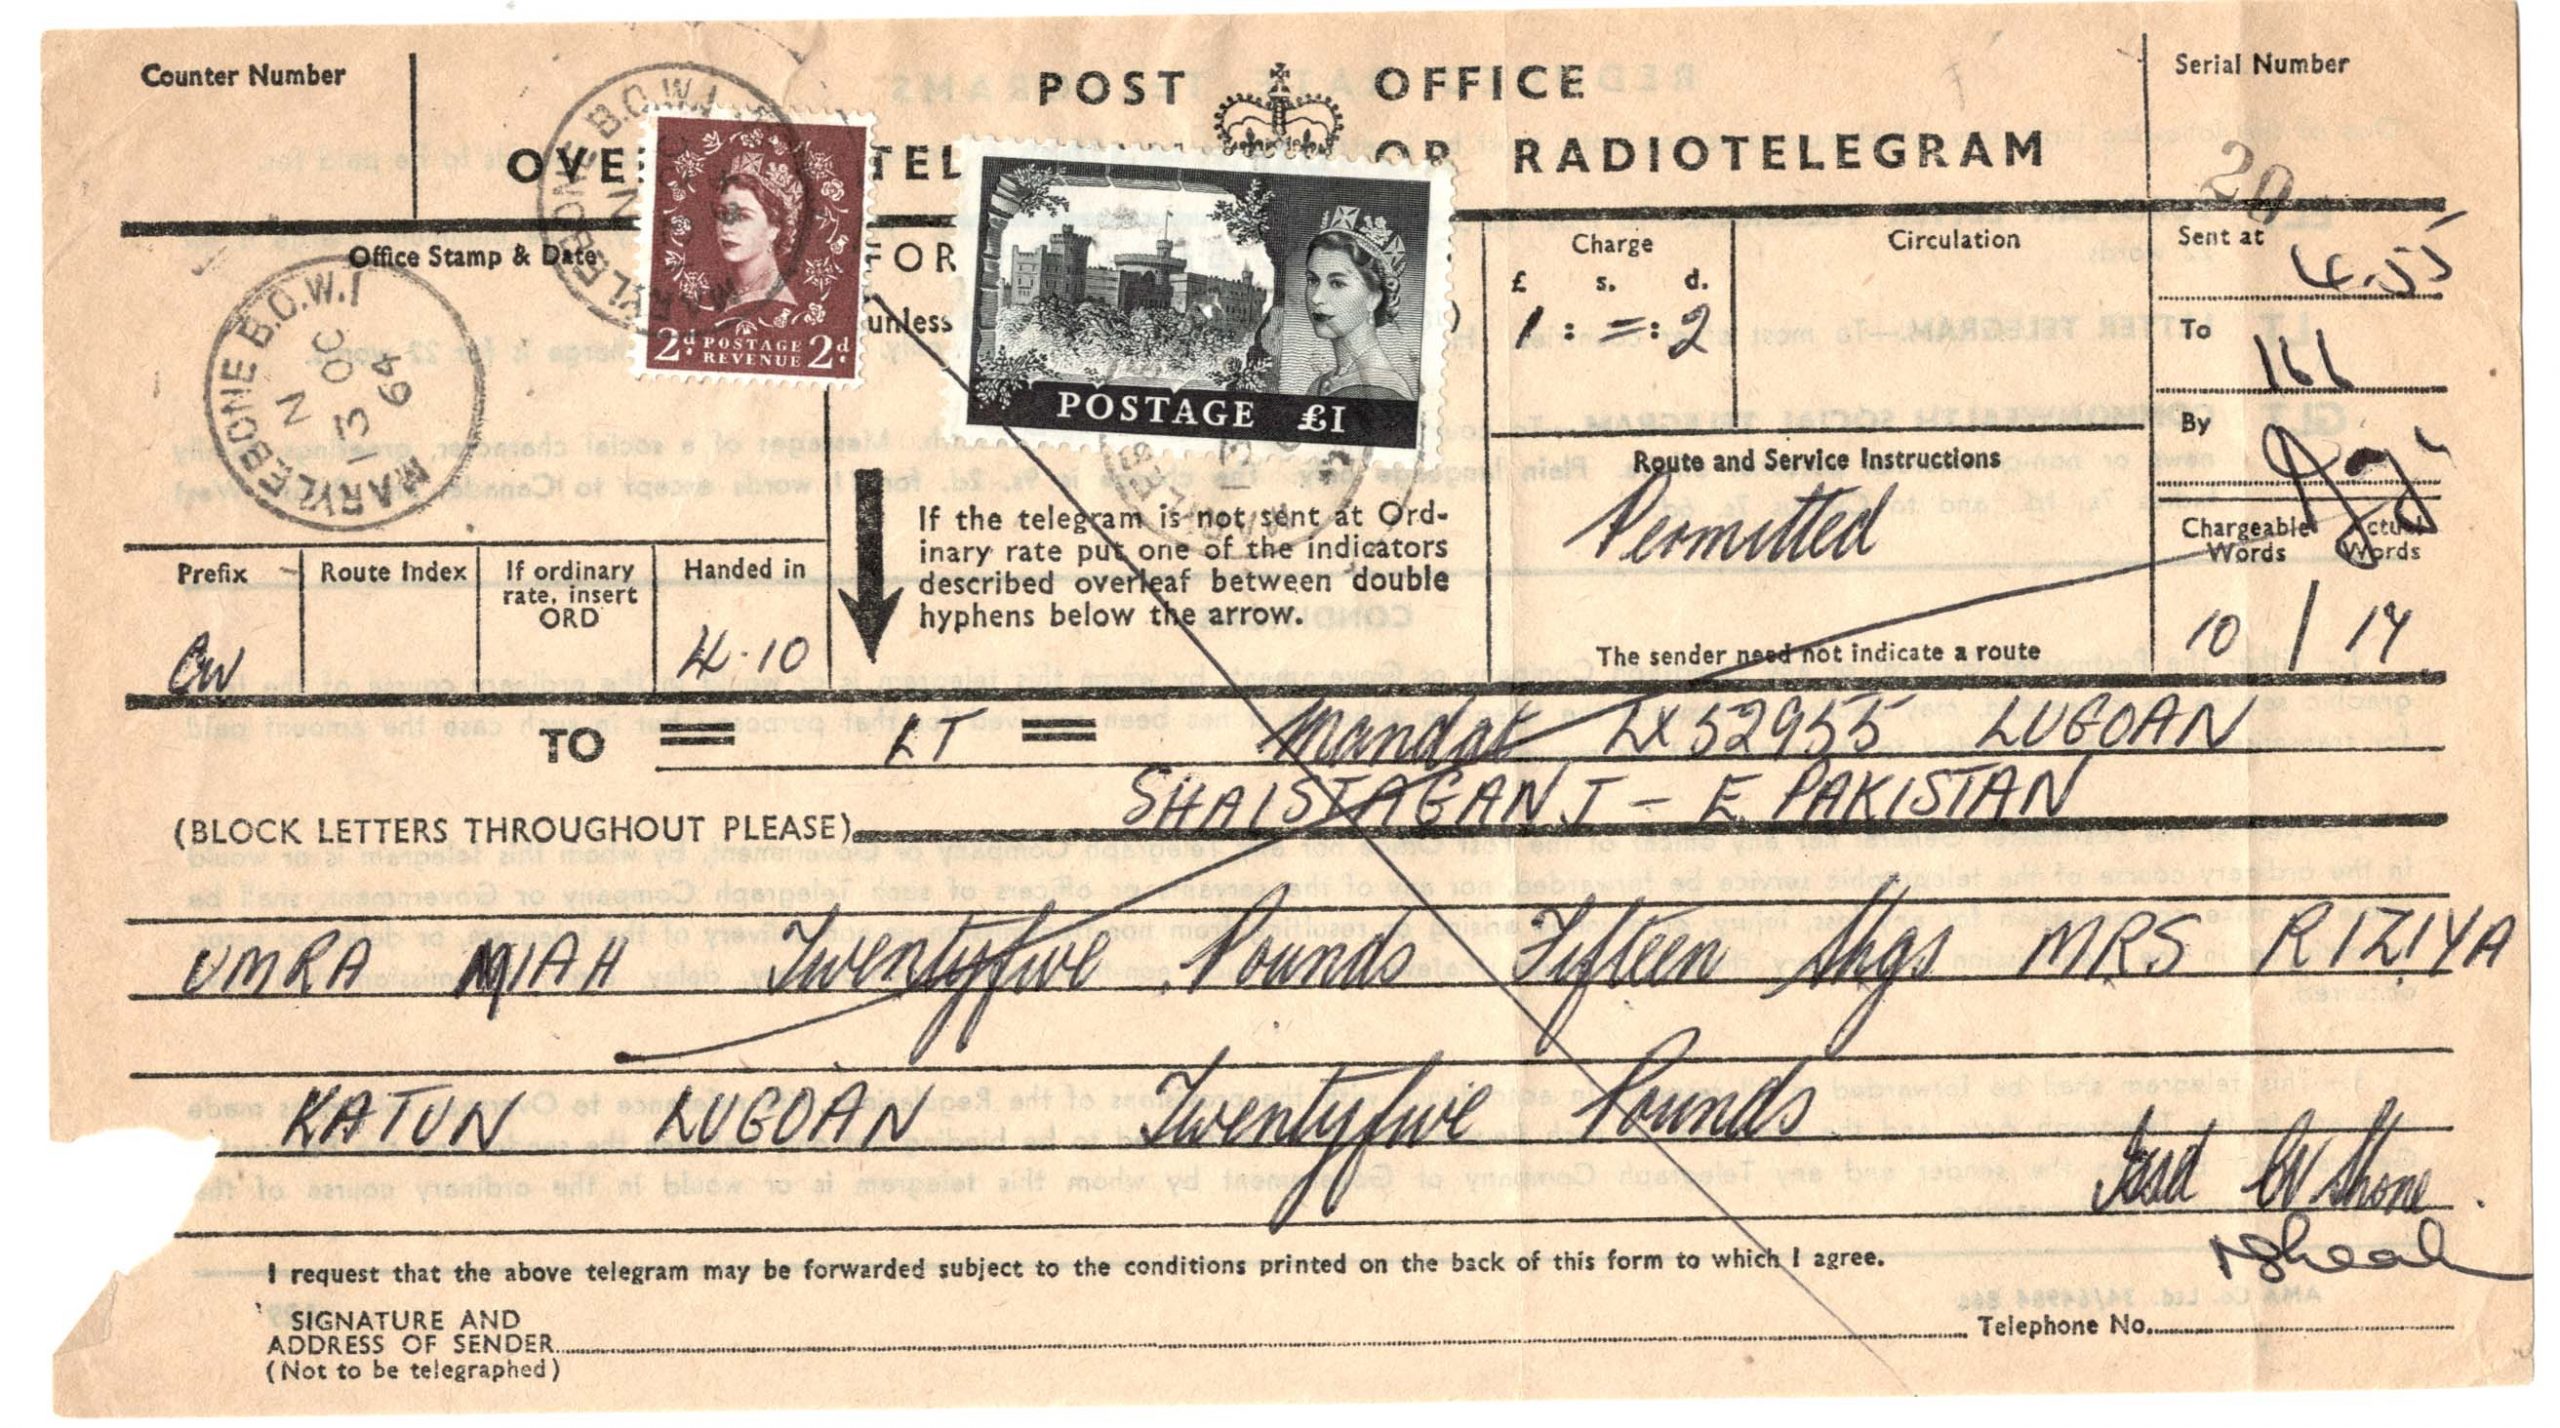 Counter Number
POST OFFICE
Serial Number
OVE TEL OR RADIOTELEGRAM
20
MARYLEBONE B.O.W.1
2d POSTAGE REVENUE 2d
POSTAGE £1
Office Stamp & Date
MARYLEBONE B.O.W.1
N
13 OC
64
FOR
unless
Charge
£ s. d.
1 : = : 2
Circulation
Sent at 4.55
To 166
By
Route and Service Instructions
Permitted
The sender need not indicate a route
Chargeable Words Actual Words
10 / 14
If the telegram is not sent at Ord-
inary rate put one of the indicators
described overleaf between double
hyphens below the arrow.
Prefix Route Index If ordinary rate, insert ORD Handed in
CW 4.10
TO = LT = Mandat LX52955 LUGOAN
SHAISTAGANJ - E PAKISTAN
(BLOCK LETTERS THROUGHOUT PLEASE)
UMRA MIAH Twentyfive Pounds Fifteen Shgs MRS RIZIYA
KATUN LUGOAN Twentyfive Pounds
I request that the above telegram may be forwarded subject to the conditions printed on the back of this form to which I agree.
SIGNATURE AND
ADDRESS OF SENDER
(Not to be telegraphed)
Telephone No.